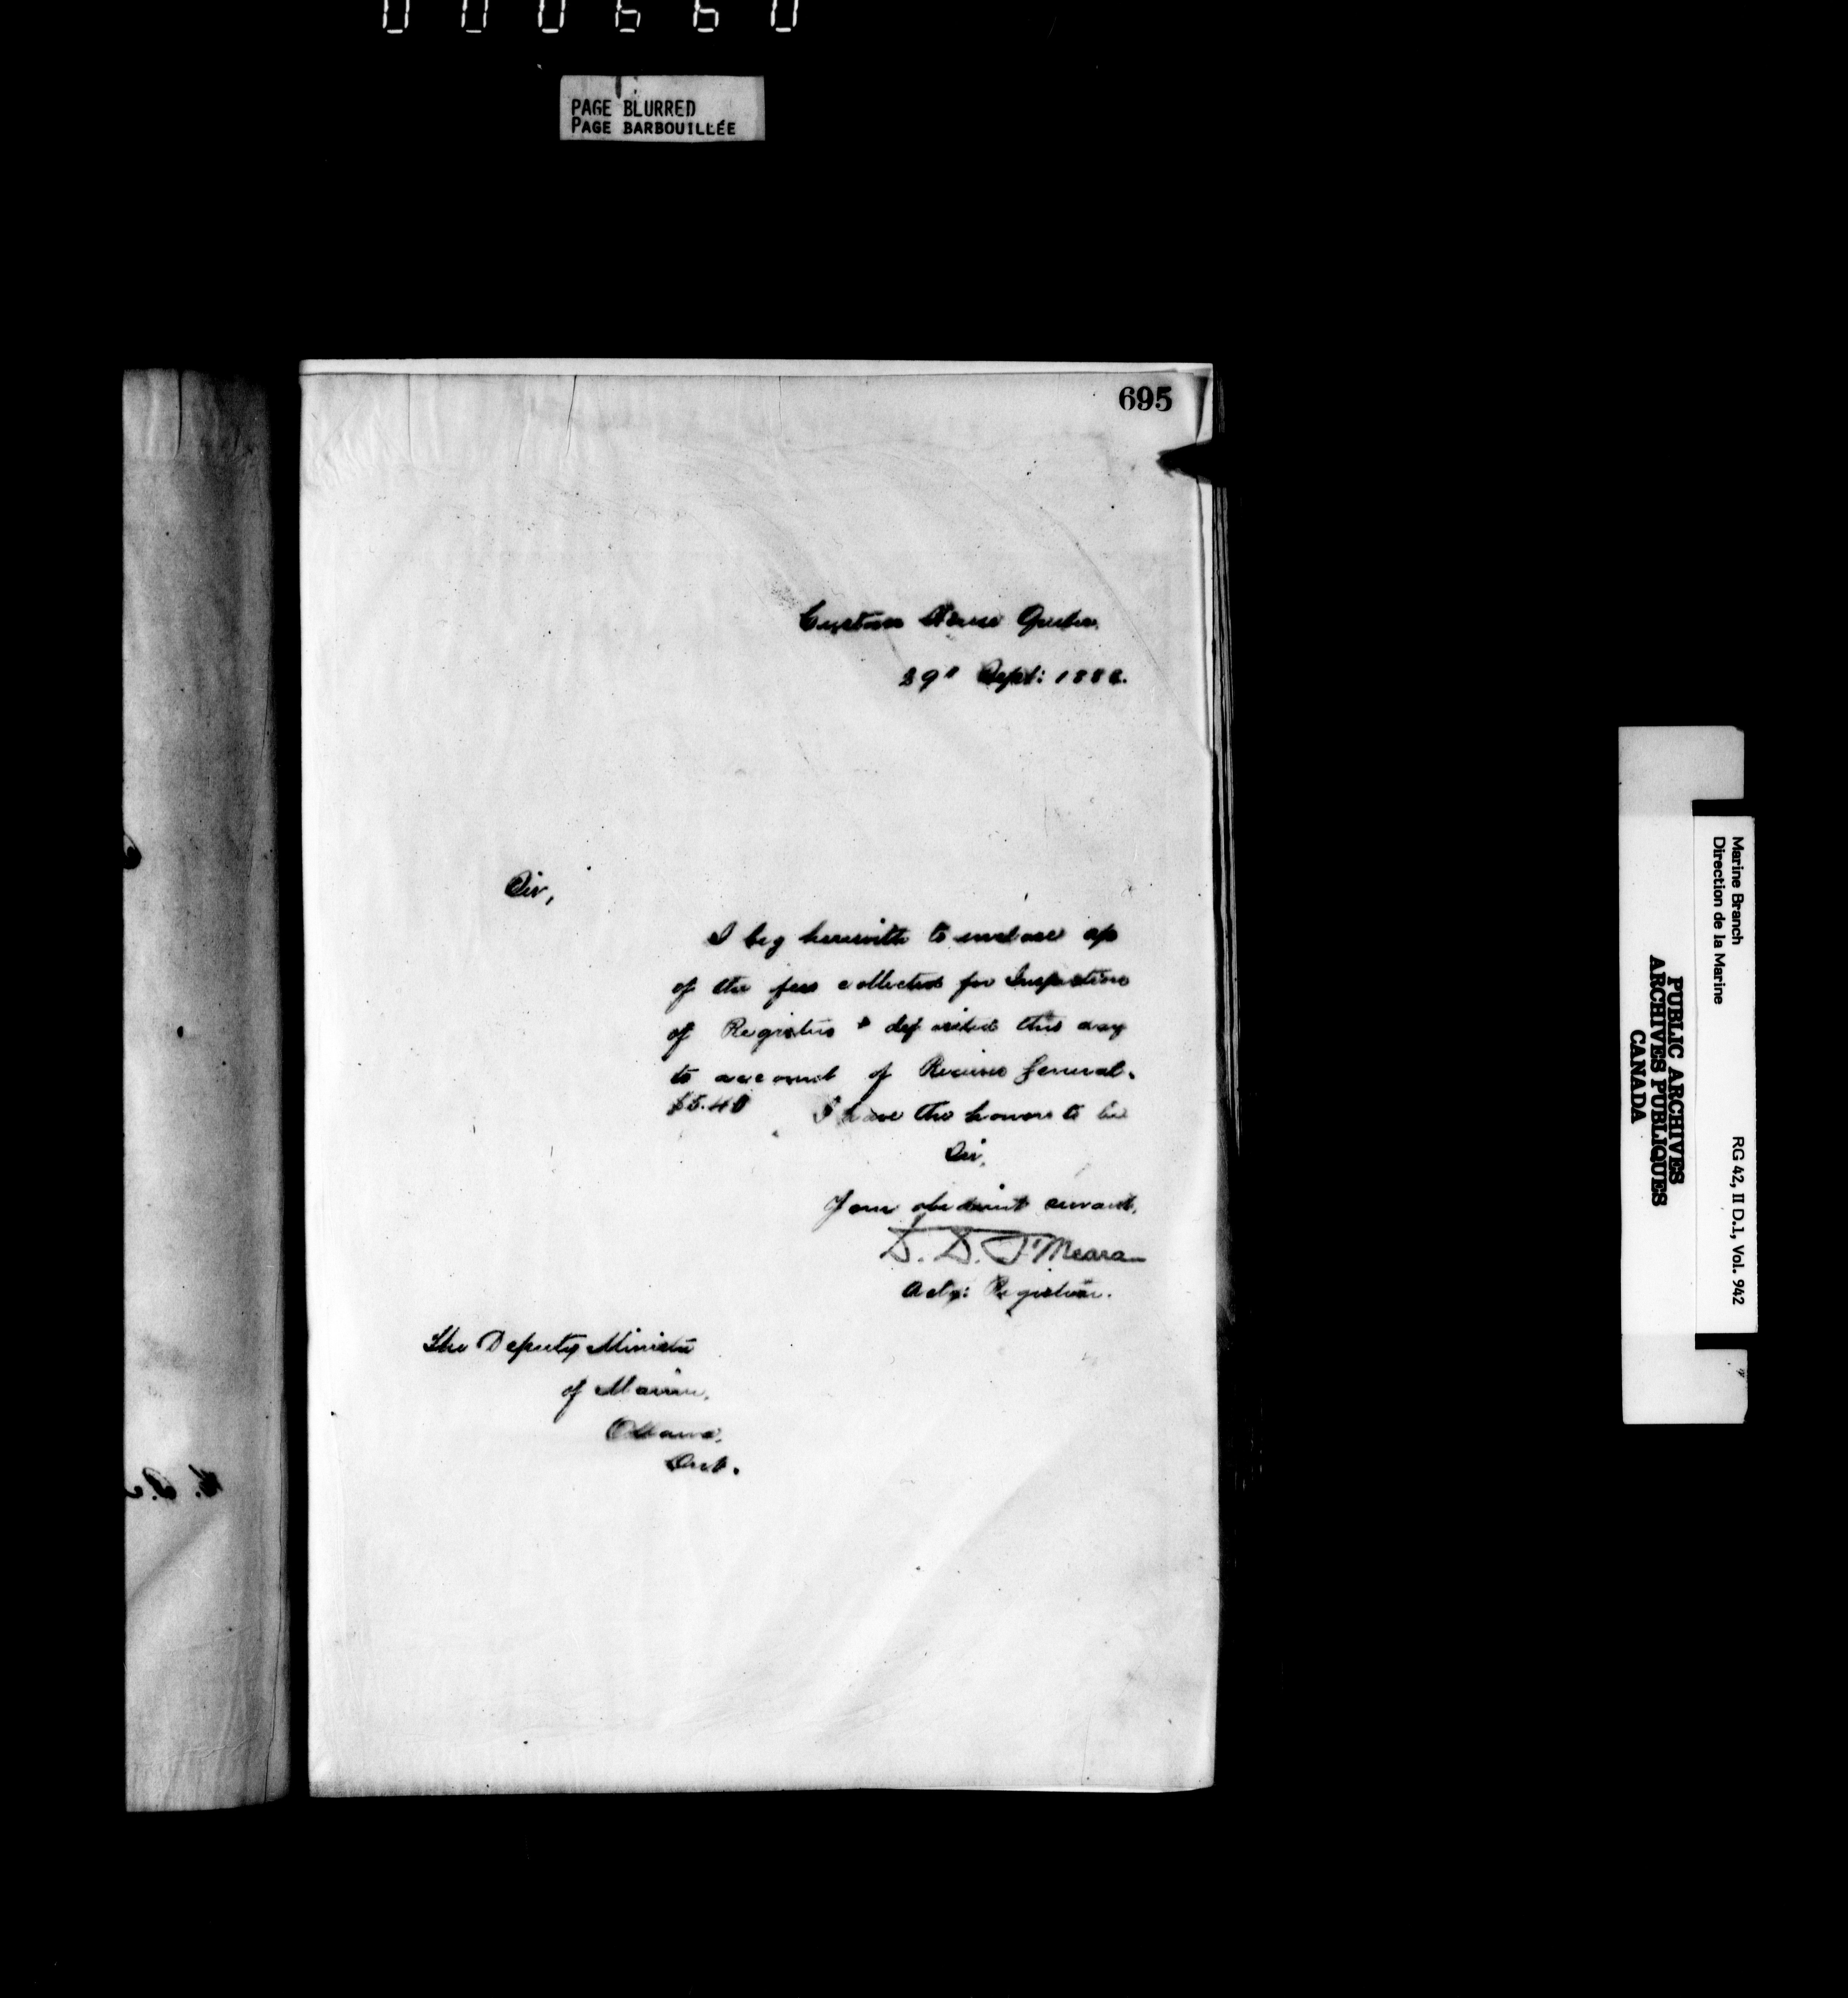 000660
PAGE BLURRED
PAGE BARBOUILLÉE
695
Custom House Quebec
29" Sept: 188
Sir,
I beg herewith to enclose a/c
of the fees collected for Inspection
of Registers & deposited this day
to account of Receiver General.
$5.40 I have the honor to be
Sir,
Your obedient servant,
D. D. O'Meara
Actg: Registrar.
The Deputy Minister
of Marine,
Ottawa,
Ont.
Marine Branch RG 42, II D.1, Vol. 942
Direction de la Marine
PUBLIC ARCHIVES
ARCHIVES PUBLIQUES
CANADA